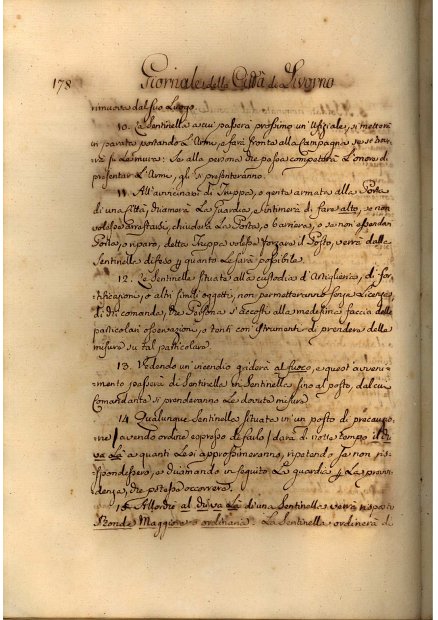 178 Giornale della Città di Livorno
rimuova dal suo Luogo.
10. La Sentinella a cui passerà prossimo un' Ufiziale, si metterà
in parata portando L'Arme, e farà fronte alla Campagna se si tro-
verà su Le mura: Se alla persona che passa competerà L'onore di
presentar L'Arme, gli si presenteranno.
11. All'avvicinarsi di Truppa, o gente armata alla Porta
di una Città, chiamerà La Guardia, e intimerà di fare alto, se non
volesse arrestarsi, chiuderà La Porta, o barriera, o se non essendovi
Porta, o riparo, detta Truppa volesse forzare il Posto, verrà dalla
Sentinella difeso per quanto Le sarà possibile.
12. Le Sentinelle situate alla custodia d'Artiglieria, di for-
tificazioni, o altri simili oggetti, non permetteranno senza Licenza,
di chi comanda, che Persona si accosti alla medesima faccia delle
particolari osservazioni, o tenti con istrumenti di prendere delle
misure su tal particolare.
13. Vedendo un'incendio griderà al fuoco, e quest'avveni-
mento passerà di Sentinella in Sentinella fino al posto, dal cui
Comandante si prenderanno Le dovute misure.
14. Qualunque Sentinella situata in un posto di precauzio-
ne / avendo ordine espresso di farlo / darà di notte tempo il chi
va Là a quanti Le si approssimeranno, ripetendo se non ris-
pondessero, e chiamando in seguito La guardia per La provi-
denza, che potesse occorrere.
15. Allorchè al chi va Là di una Sentinella verrà risposto
Ronda Maggiore o ordinaria: La Sentinella ordinerà di